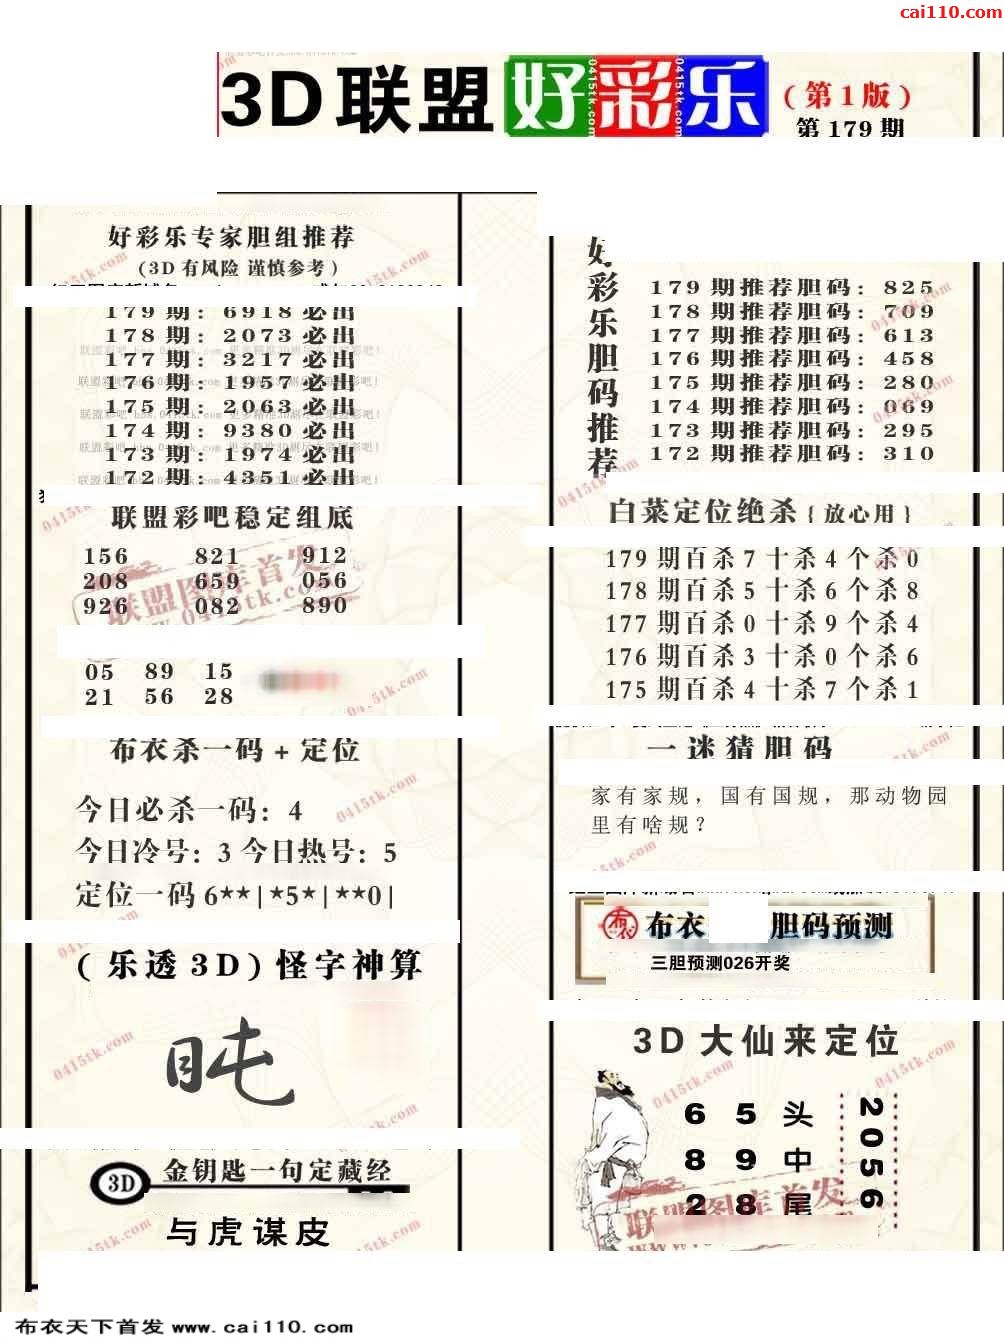 cai110.com
3D联盟好彩乐
(第1版)
第179期
好彩乐专家胆组推荐
(3D有风险 谨慎参考)
179期: 6918必出
178期: 2073必出
177期: 3217必出
176期: 1957必出
175期: 2063必出
174期: 9380必出
173期: 1974必出
172期: 4351必出
联盟彩吧稳定组底
156 821 912
208 659 056
926 082 890
05 89 15
21 56 28
布衣杀一码+定位
今日必杀一码: 4
今日冷号: 3 今日热号: 5
定位一码 6**|*5*|**0|
(乐透3D)怪字神算
3D 金钥匙一句定藏经
与虎谋皮
好彩乐胆码推荐
179期推荐胆码: 825
178期推荐胆码: 709
177期推荐胆码: 613
176期推荐胆码: 458
175期推荐胆码: 280
174期推荐胆码: 069
173期推荐胆码: 295
172期推荐胆码: 310
白菜定位绝杀{放心用}
179期百杀7十杀4个杀0
178期百杀5十杀6个杀8
177期百杀0十杀9个杀4
176期百杀3十杀0个杀6
175期百杀4十杀7个杀1
一迷猜胆码
家有家规，国有国规，那动物园
里有啥规？
布衣 布衣 胆码预测
三胆预测026开奖
3D大仙来定位
6 5 头
8 9 中
2 8 尾
2056
联盟图库首发
0415tk.com
布衣天下首发 www.cai110.com